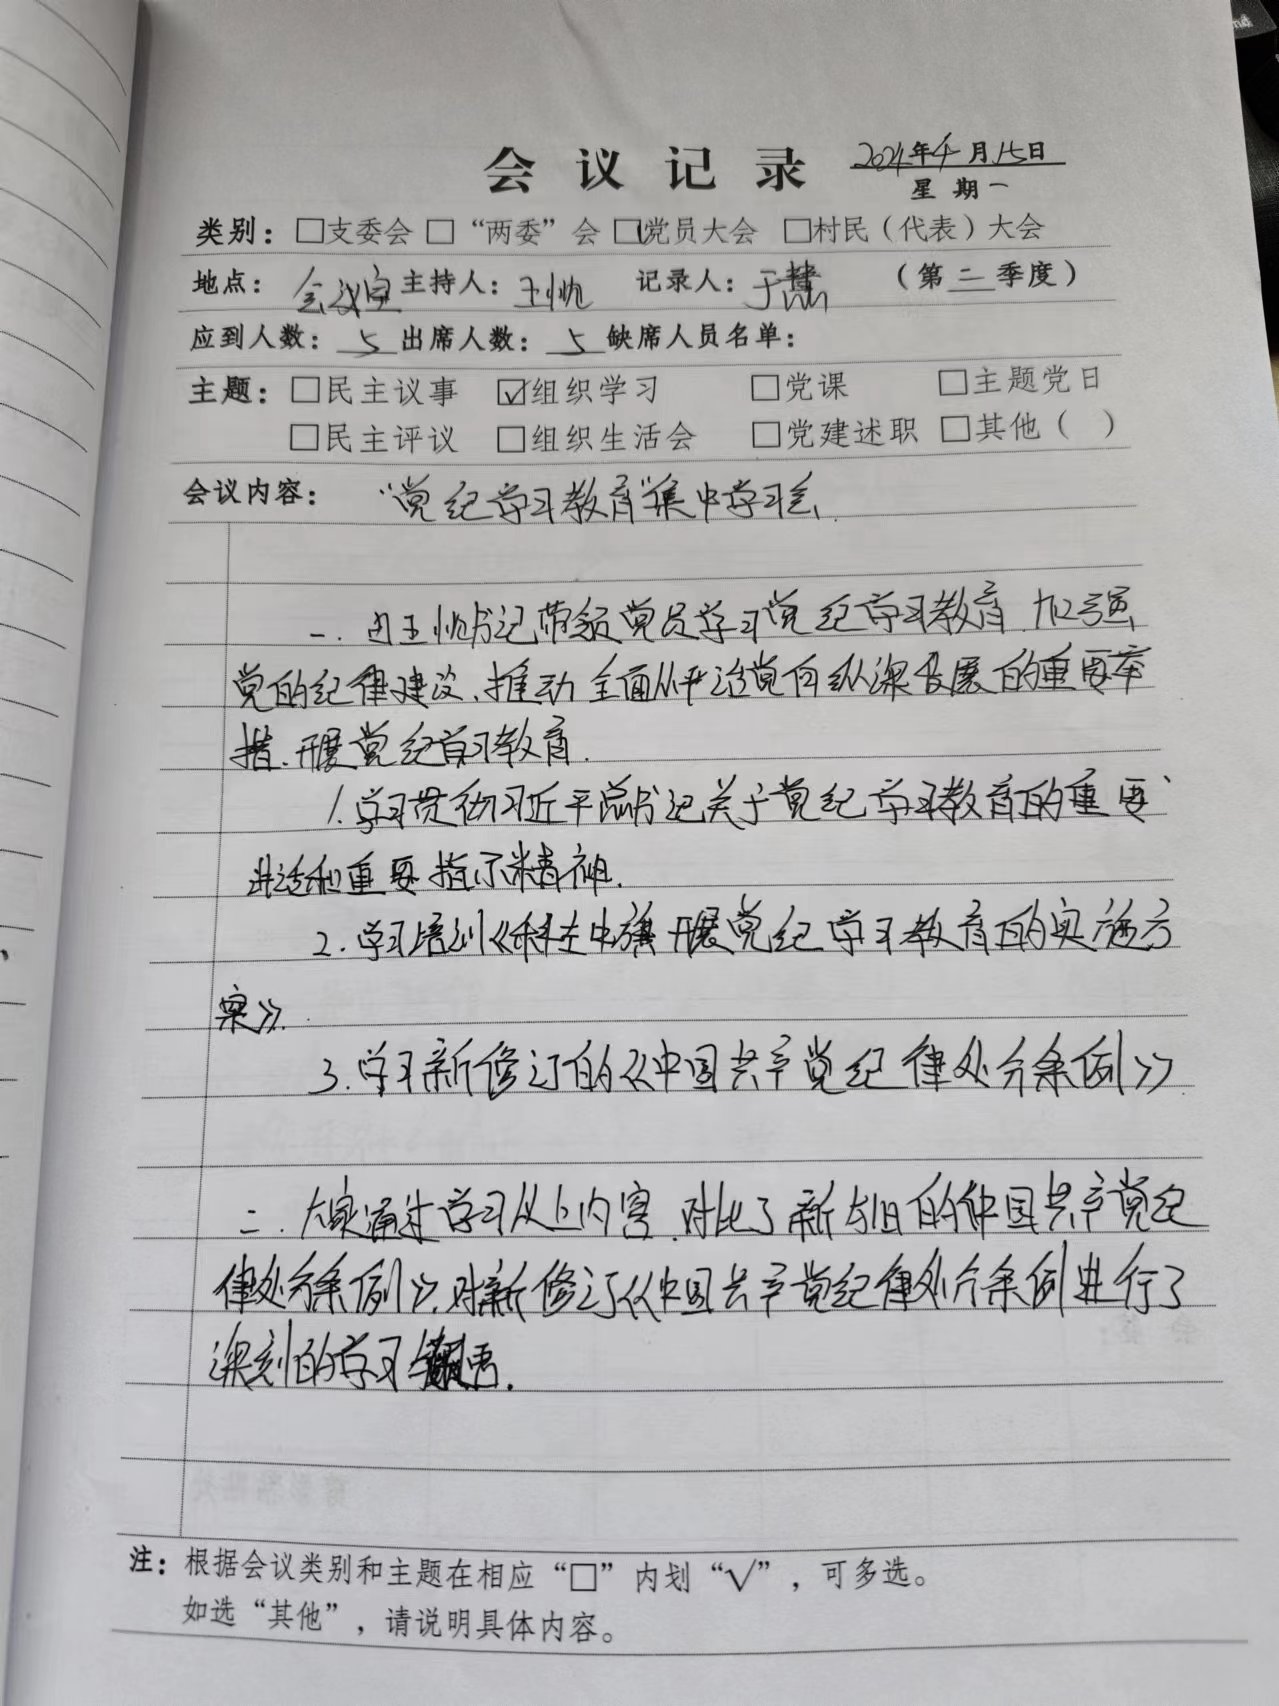 会议记录 2024年4月15日
星期一
类别：□支委会 □“两委”会 ☑党员大会 □村民（代表）大会
地点：会议室 主持人：王忱 记录人：于慧 （第二季度）
应到人数：5 出席人数：5 缺席人员名单：
主题：□民主议事 ☑组织学习 □党课 □主题党日
□民主评议 □组织生活会 □党建述职 □其他（ ）
会议内容：“党纪学习教育”集中学习会.
一.由王忱书记带领党员学习党纪学习教育.加强
党的纪律建设、推动全面从严治党向纵深发展的重要举
措.开展党纪学习教育.
1.学习贯彻习近平总书记关于党纪学习教育的重要
讲话和重要指示精神.
2.学习培训《科左中旗开展党纪学习教育的实施方
案》.
3.学习新修订的《中国共产党纪律处分条例》
二.大家通过学习以上内容.对比了新与旧的《中国共产党纪
律处分条例》.对新修订《中国共产党纪律处分条例进行了
深刻的学习领悟.
注：根据会议类别和主题在相应“□”内划“√”，可多选。
如选“其他”，请说明具体内容。